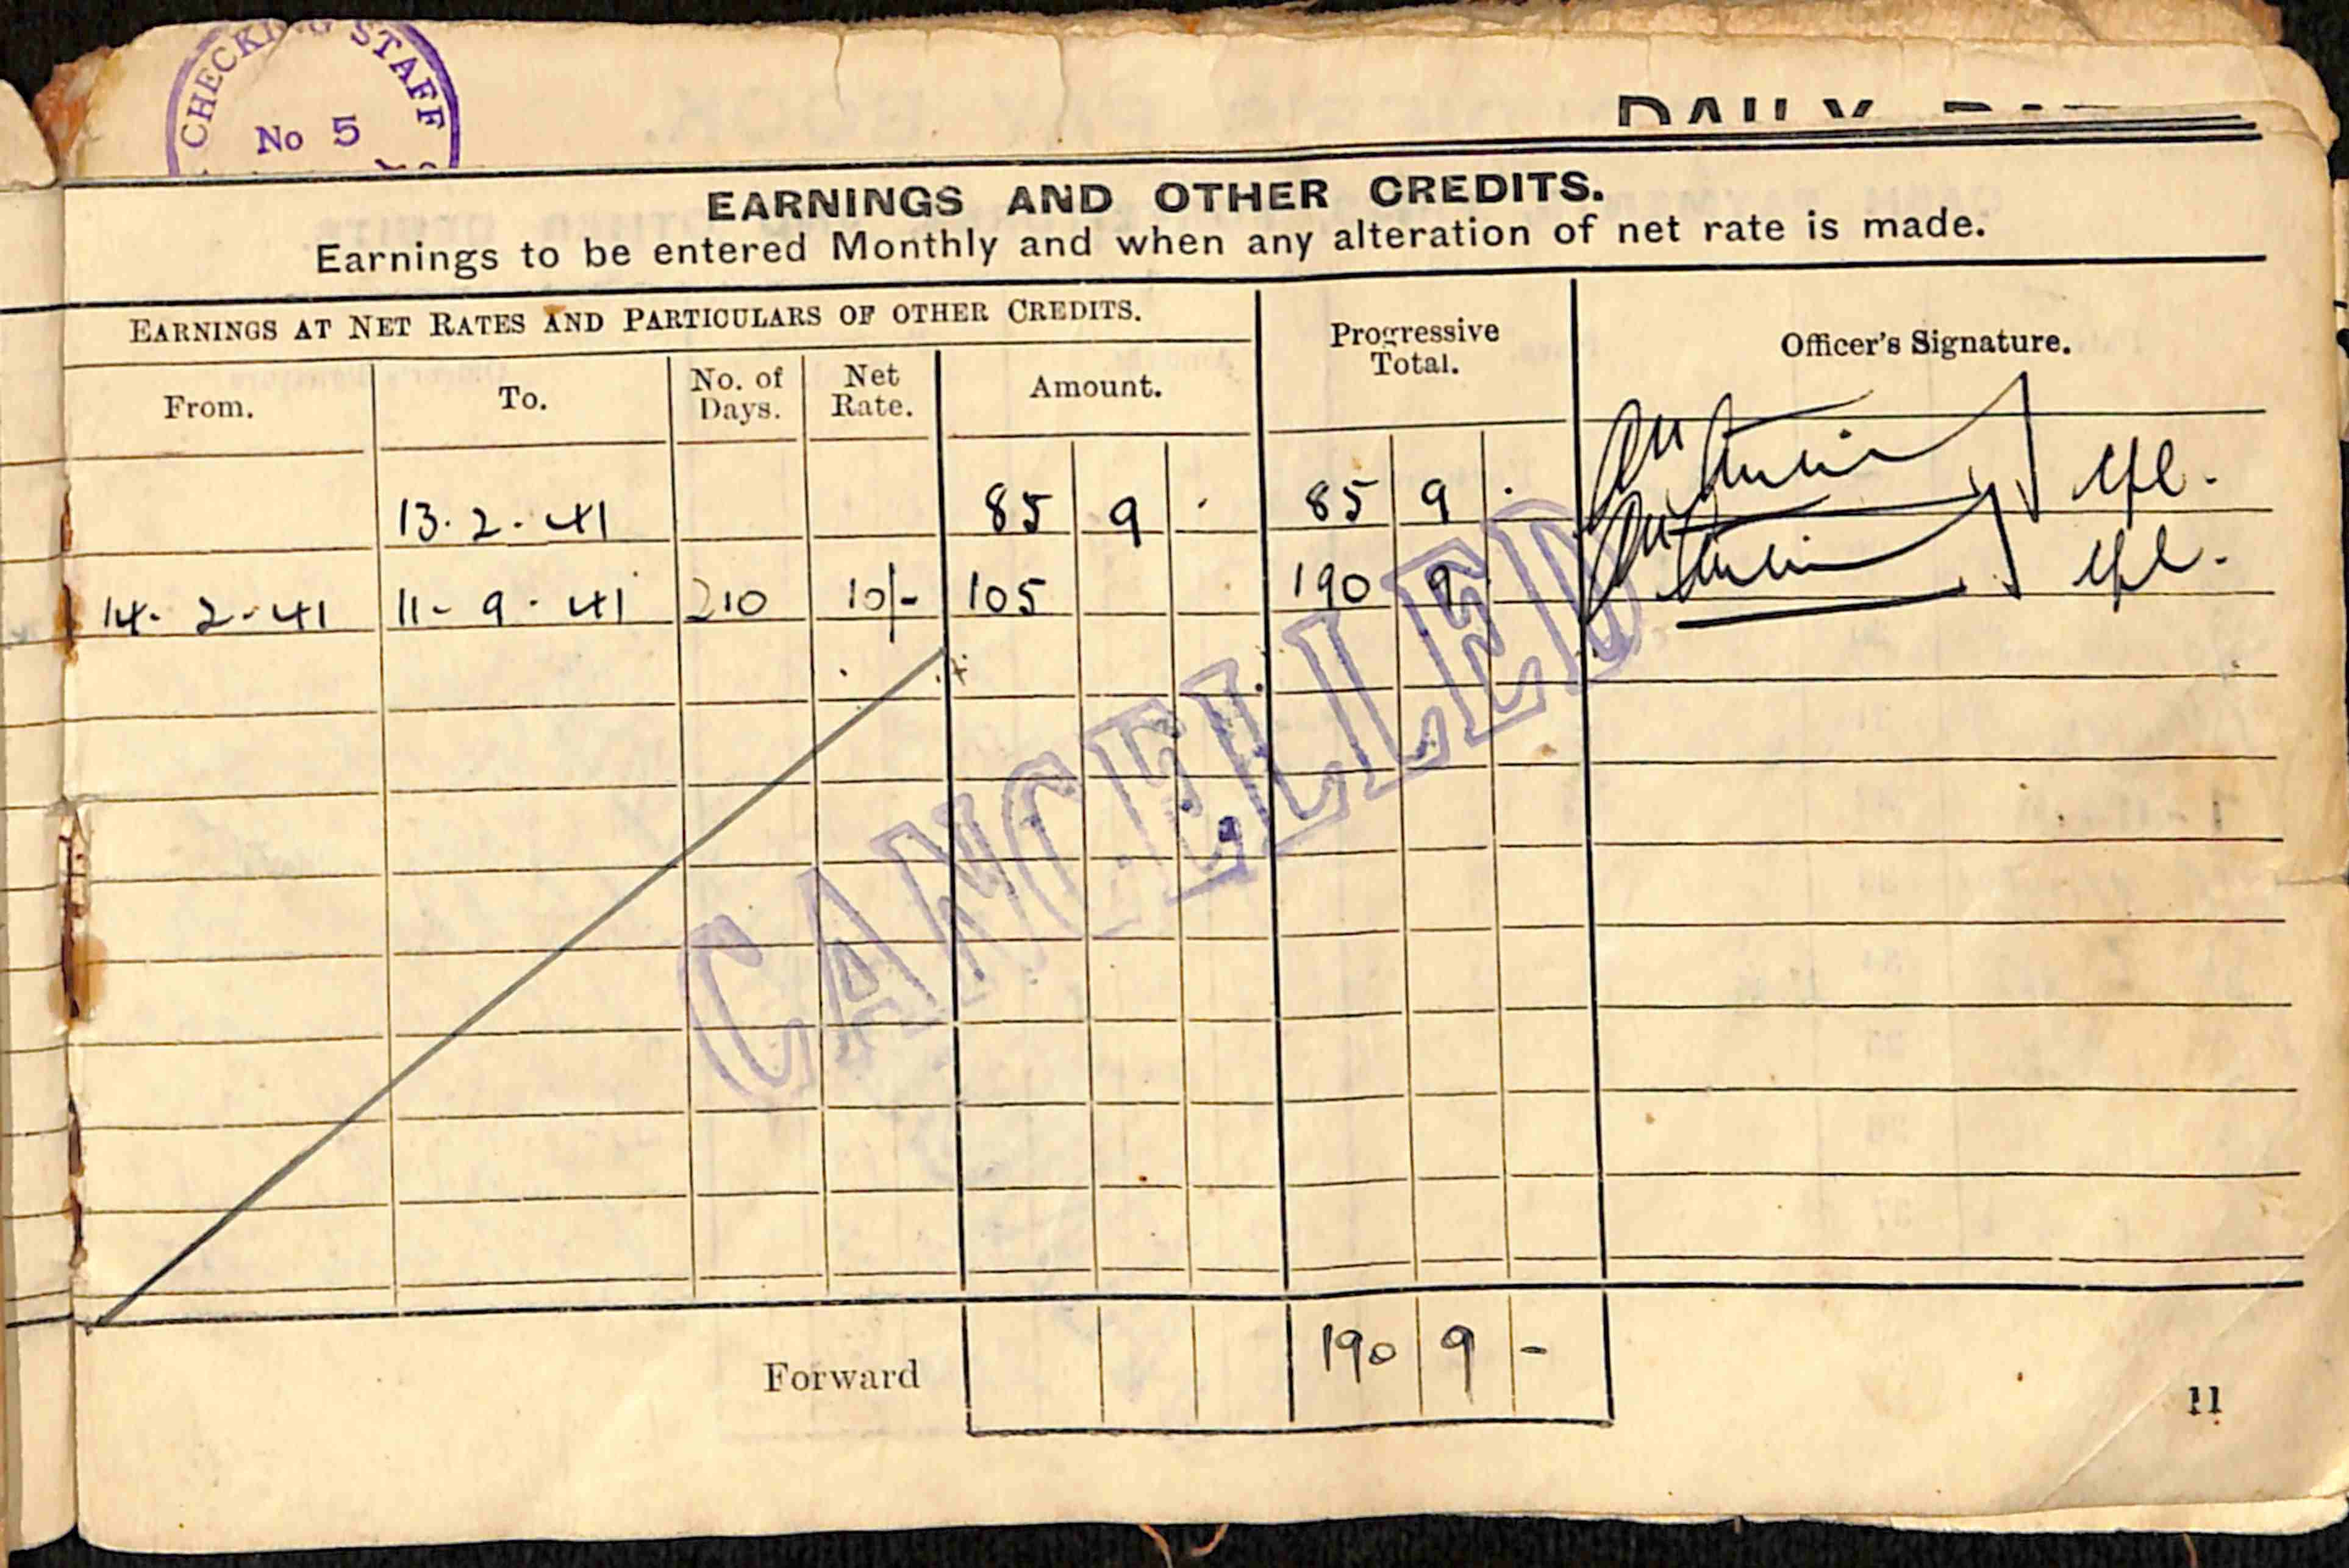 CHECKING STAFF
No 5
DAILY
EARNINGS AND OTHER CREDITS.
Earnings to be entered Monthly and when any alteration of net rate is made.
EARNINGS AT NET RATES AND PARTICULARS OF OTHER CREDITS.
Progressive Total.
Officer's Signature.
From.
To.
No. of Days.
Net Rate.
Amount.
13. 2. 41 85 9 . 85 9 .
14. 2. 41 11- 9. 41 210 10/- 105 190 9
CANCELLED
Forward 190 9 -
11